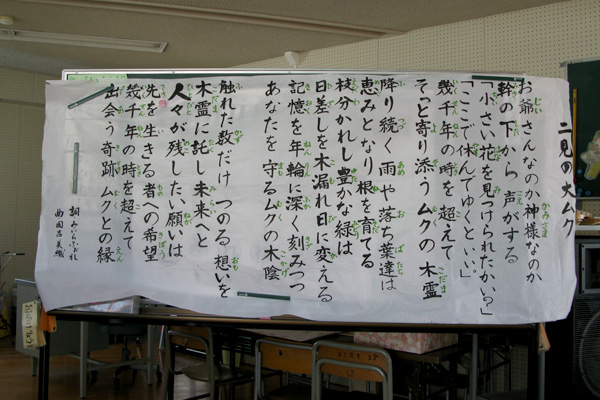 二見の大ムク
お爺さんなのか神様なのか
幹の下から 声がする
「小さい花を見つけられたかい?」
「ここで休んでゆくといい…」
幾千年の時を超えて
そっと寄り添うムクの木霊
降り続く雨や落ち葉達は
恵みとなり根を育てる
枝分かれし豊かな緑は
日差しを木漏れ日に変える
記憶を年輪に深く刻みつつ
あなたを守るムクの木陰
触れた数だけ つのる想いを
木霊に託し未来へと
人々が残したい願いは
先を生きる者への希望
幾千年の時を超えて
出会う奇跡 ムクとの縁